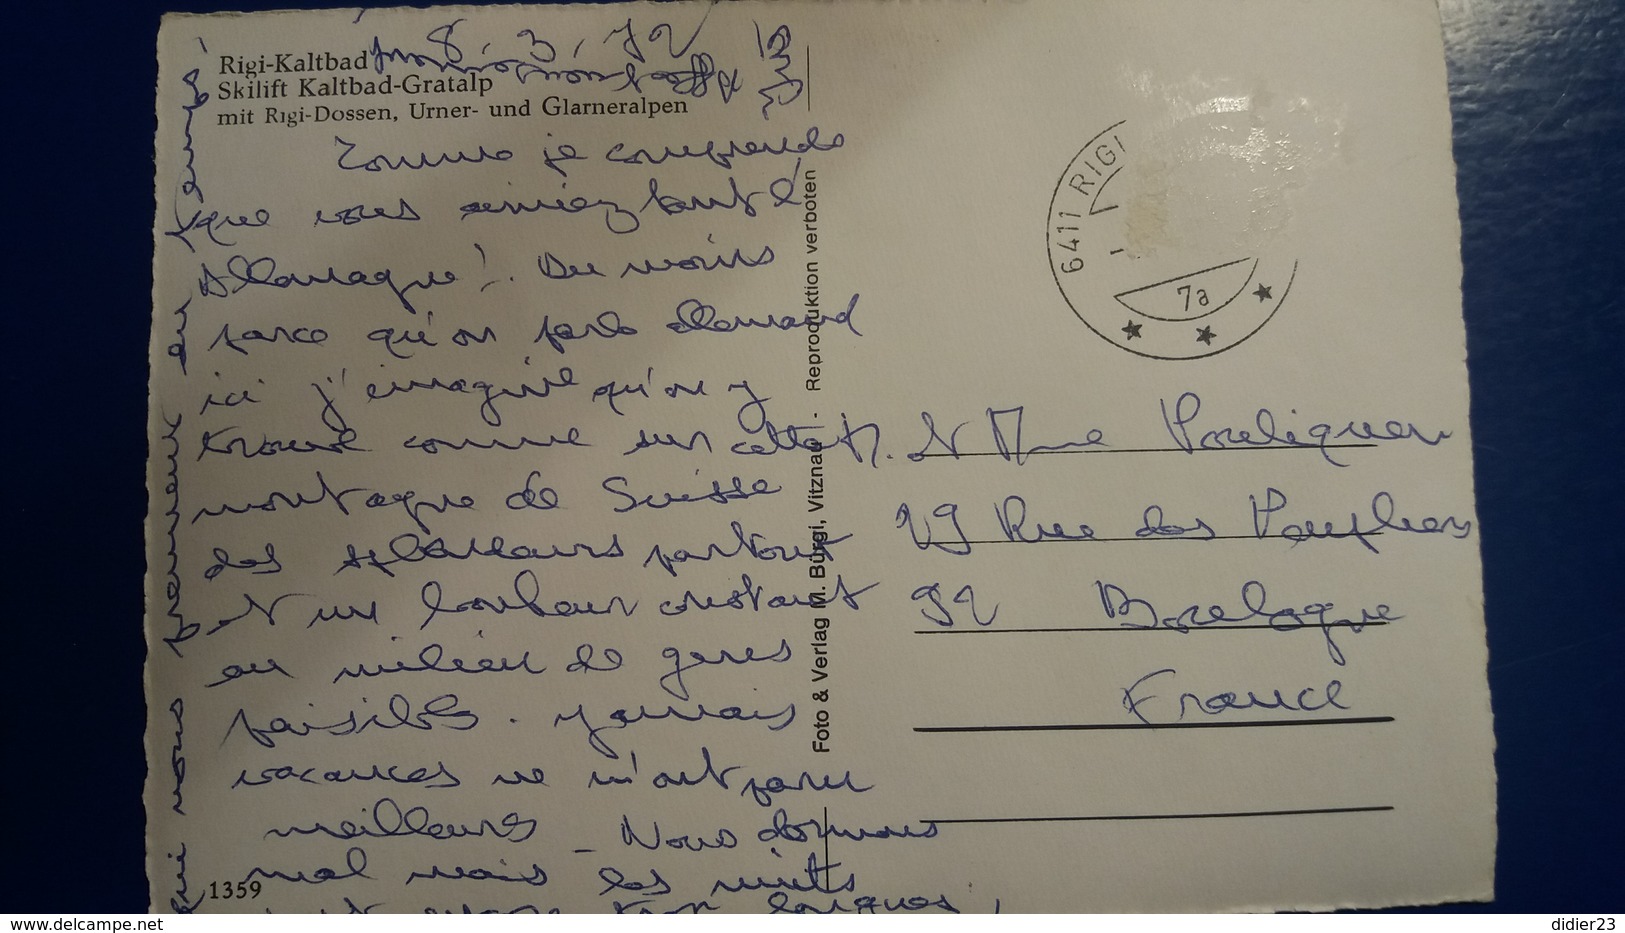 Rigi-Kaltbad
Skilift Kaltbad-Gratalp
mit Rigi-Dossen, Urner- und Glarneralpen
8.3.72
Comme je comprends
que vous aimiez tant l'
Allemagne! . Du moins
parce qu'on parle allemand
ici j'imagine qu'on y
trouve comme sur cette
montagne de Suisse
des splendeurs partout
et un bonheur constant
au milieu de gens
paisibles. Jamais
vacances ne m'ont paru
meilleures _ Nous dormons
mal mais les nuits
trop longues,
qui nous prennent en
Foto & Verlag M. Bürgi, Vitznau - Reproduktion verboten
6411 RIGI
7a
M. et Mme Pouliquen
29 Rue des Peupliers
92 Boulogne
France
1359
https://www.delcampe.net
didier23